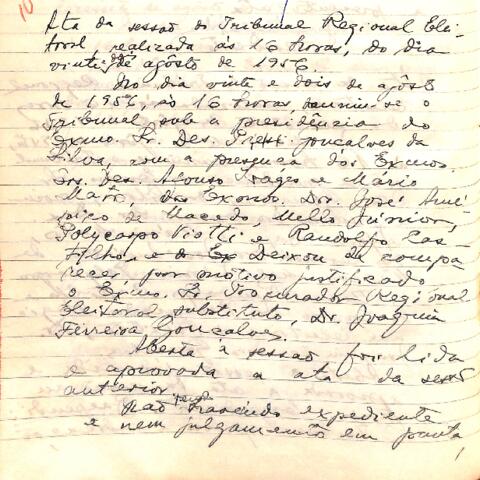 10
Ata da sessão do Tribunal Regional Elei-
toral, realizada às 16 horas, do dia
vinte dois de agosto de 1956
No dia vinte e dois de agôsto
de 1956, às 16 horas, reuniu-se o
Tribunal sob a presidência do
Exmo. Sr. Des. Gonçalves da
Silva, com a presença dos Exmos.
Srs. Des. Afonso Lages e Mário
Matos, dos Exmos. Drs. José Amé-
rico de Macedo, Mello Júnior,
Polycarpo Viotti e Randolfo
Filho, e o Ex Deixou de compa-
recer por motivo justificado
o Exmo. Sr. Procurador Regional
Eleitoral substituto, Dr. Joaquim
Ferreira Gonçalves.
Aberta a sessão foi lida
e aprovada a ata da sessão
anterior
Não havendo expediente
e nem julgamento em pauta